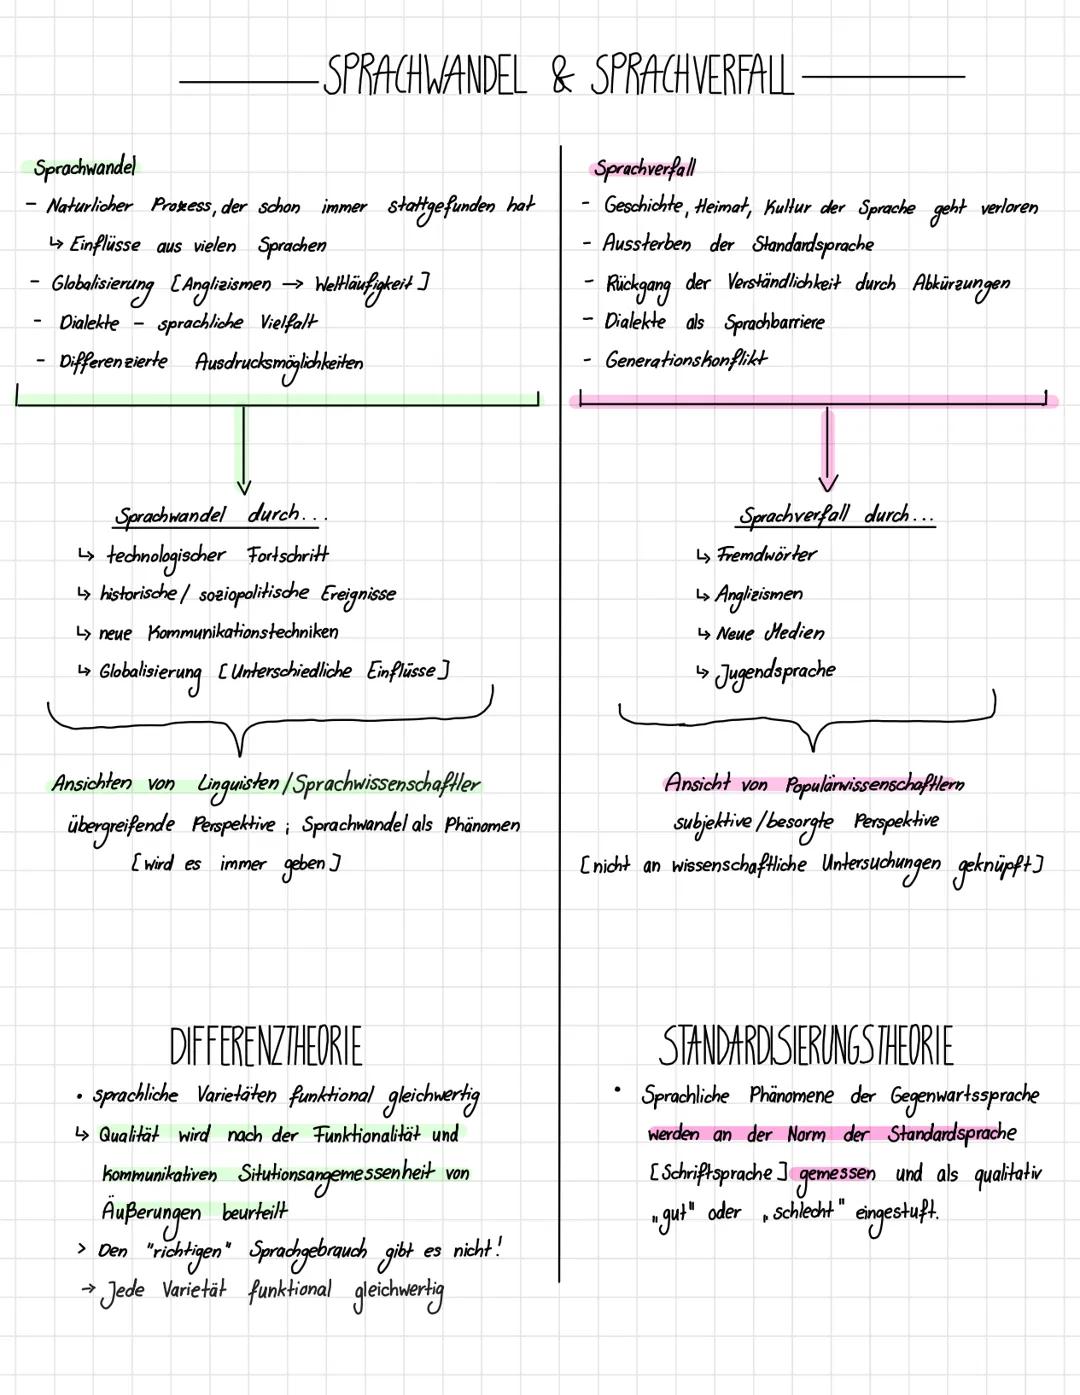 SPRACHWANDEL & SPRACHVERFALL
Sprachwandel
- Naturlicher Prozess, der schon immer stattgefunden hat
↳ Einflüsse aus vielen Sprachen
- Globalisierung [Anglizismen → Weltläufigkeit]
- Dialekte - sprachliche Vielfalt
- Differenzierte Ausdrucksmöglichkeiten
Sprachwandel durch...
↳ technologischer Fortschritt
↳ historische/ soziopolitische Ereignisse
↳ neue Kommunikationstechniken
↳ Globalisierung [Unterschiedliche Einflüsse]
Ansichten von Linguisten/Sprachwissenschaftler
übergreifende Perspektive ; Sprachwandel als Phänomen
[wird es immer geben]
DIFFERENZTHEORIE
• sprachliche Varietäten funktional gleichwertig
↳ Qualität wird nach der Funktionalität und
kommunikativen Situtionsangemessenheit von
Äußerungen beurteilt
> Den "richtigen" Sprachgebrauch gibt es nicht!
→ Jede Varietät funktional gleichwertig
Sprachverfall
- Geschichte, Heimat, Kultur der Sprache geht verloren
- Aussterben der Standardsprache
- Rückgang der Verständlichkeit durch Abkürzungen
- Dialekte als Sprachbarriere
- Generationskonflikt
Sprachverfall durch...
↳ Fremdwörter
↳ Anglizismen
↳ Neue Medien
↳ Jugendsprache
Ansicht von Populärwissenschaftlern
subjektive/besorgte Perspektive
[nicht an wissenschaftliche Untersuchungen geknüpft]
STANDARDISIERUNGSTHEORIE
• Sprachliche Phänomene der Gegenwartssprache
werden an der Norm der Standardsprache
[Schriftsprache] gemessen und als qualitativ
„gut" oder „schlecht" eingestuft.